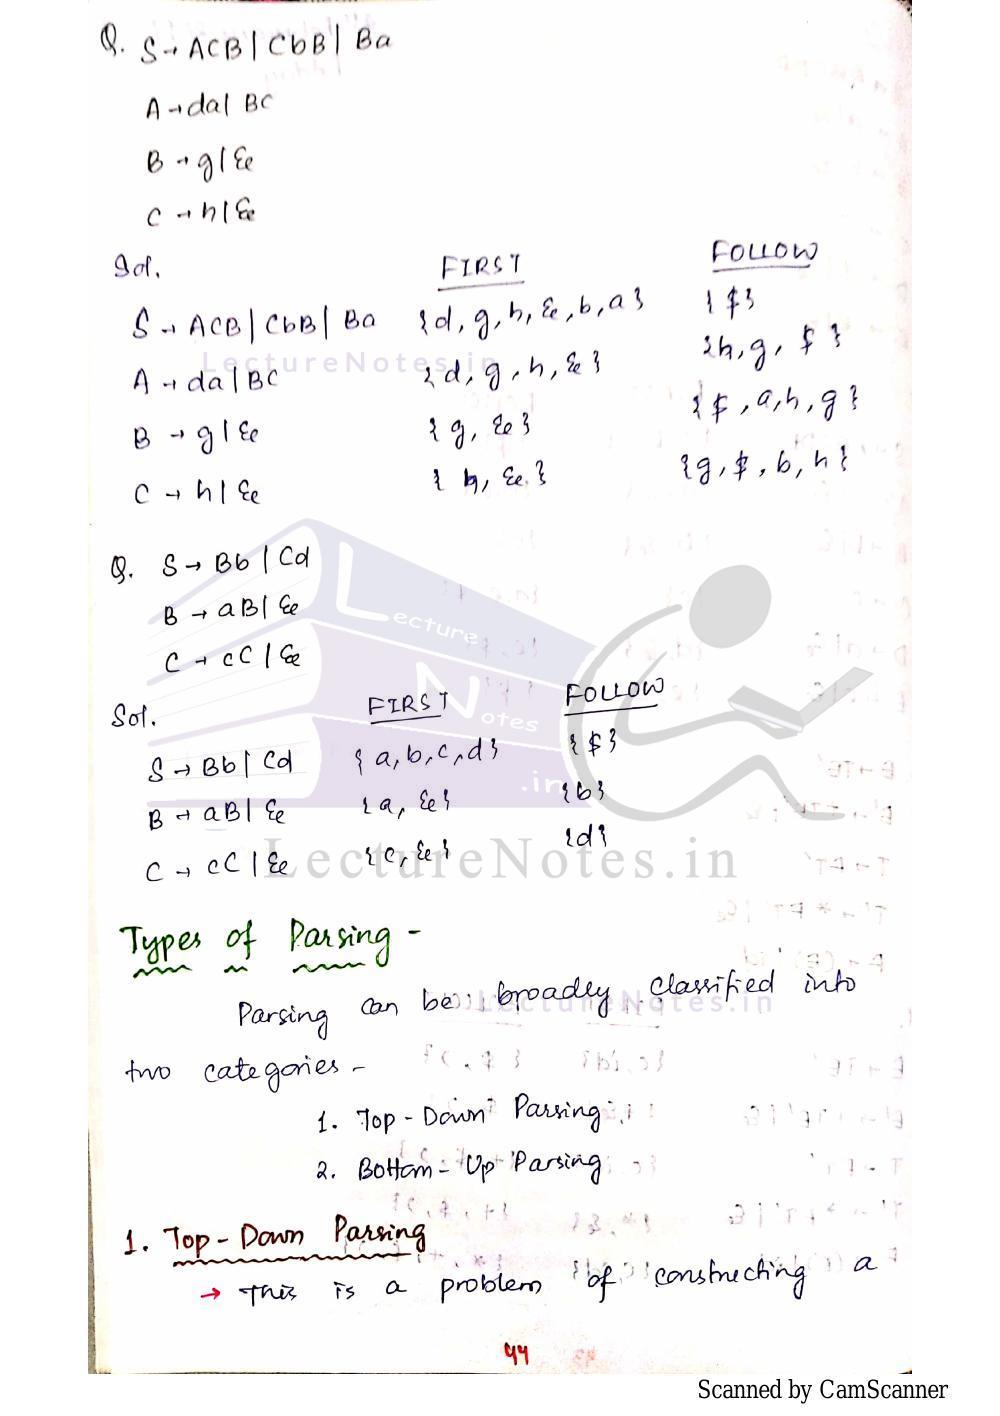 Q. S → ACB | CbB | Ba
A → da | BC
B → g | Є
C → h | Є
Sol. FIRST FOLLOW
S → ACB | CbB | Ba {d, g, h, Є, b, a} {$}
LectureNotes.in
A → da | BC {d, g, h, Є} {h, g, $}
B → g | Є {g, Є} {$, a, h, g}
C → h | Є {h, Є} {g, $, b, h}
Q. S → Bb | Cd
B → aB | Є
C → cC | Є
Lecture
Notes
.in
Sol. FIRST FOLLOW
S → Bb | Cd {a, b, c, d} {$}
B → aB | Є {a, Є} {b}
C → cC | Є {c, Є} {d}
LectureNotes.in
Types of Parsing -
Parsing can be broadly classified into
LectureNotes.in
two categories -
1. Top - Down Parsing
2. Bottom - Up Parsing
1. Top - Down Parsing
→ This is a problem of constructing a
44
Scanned by CamScanner